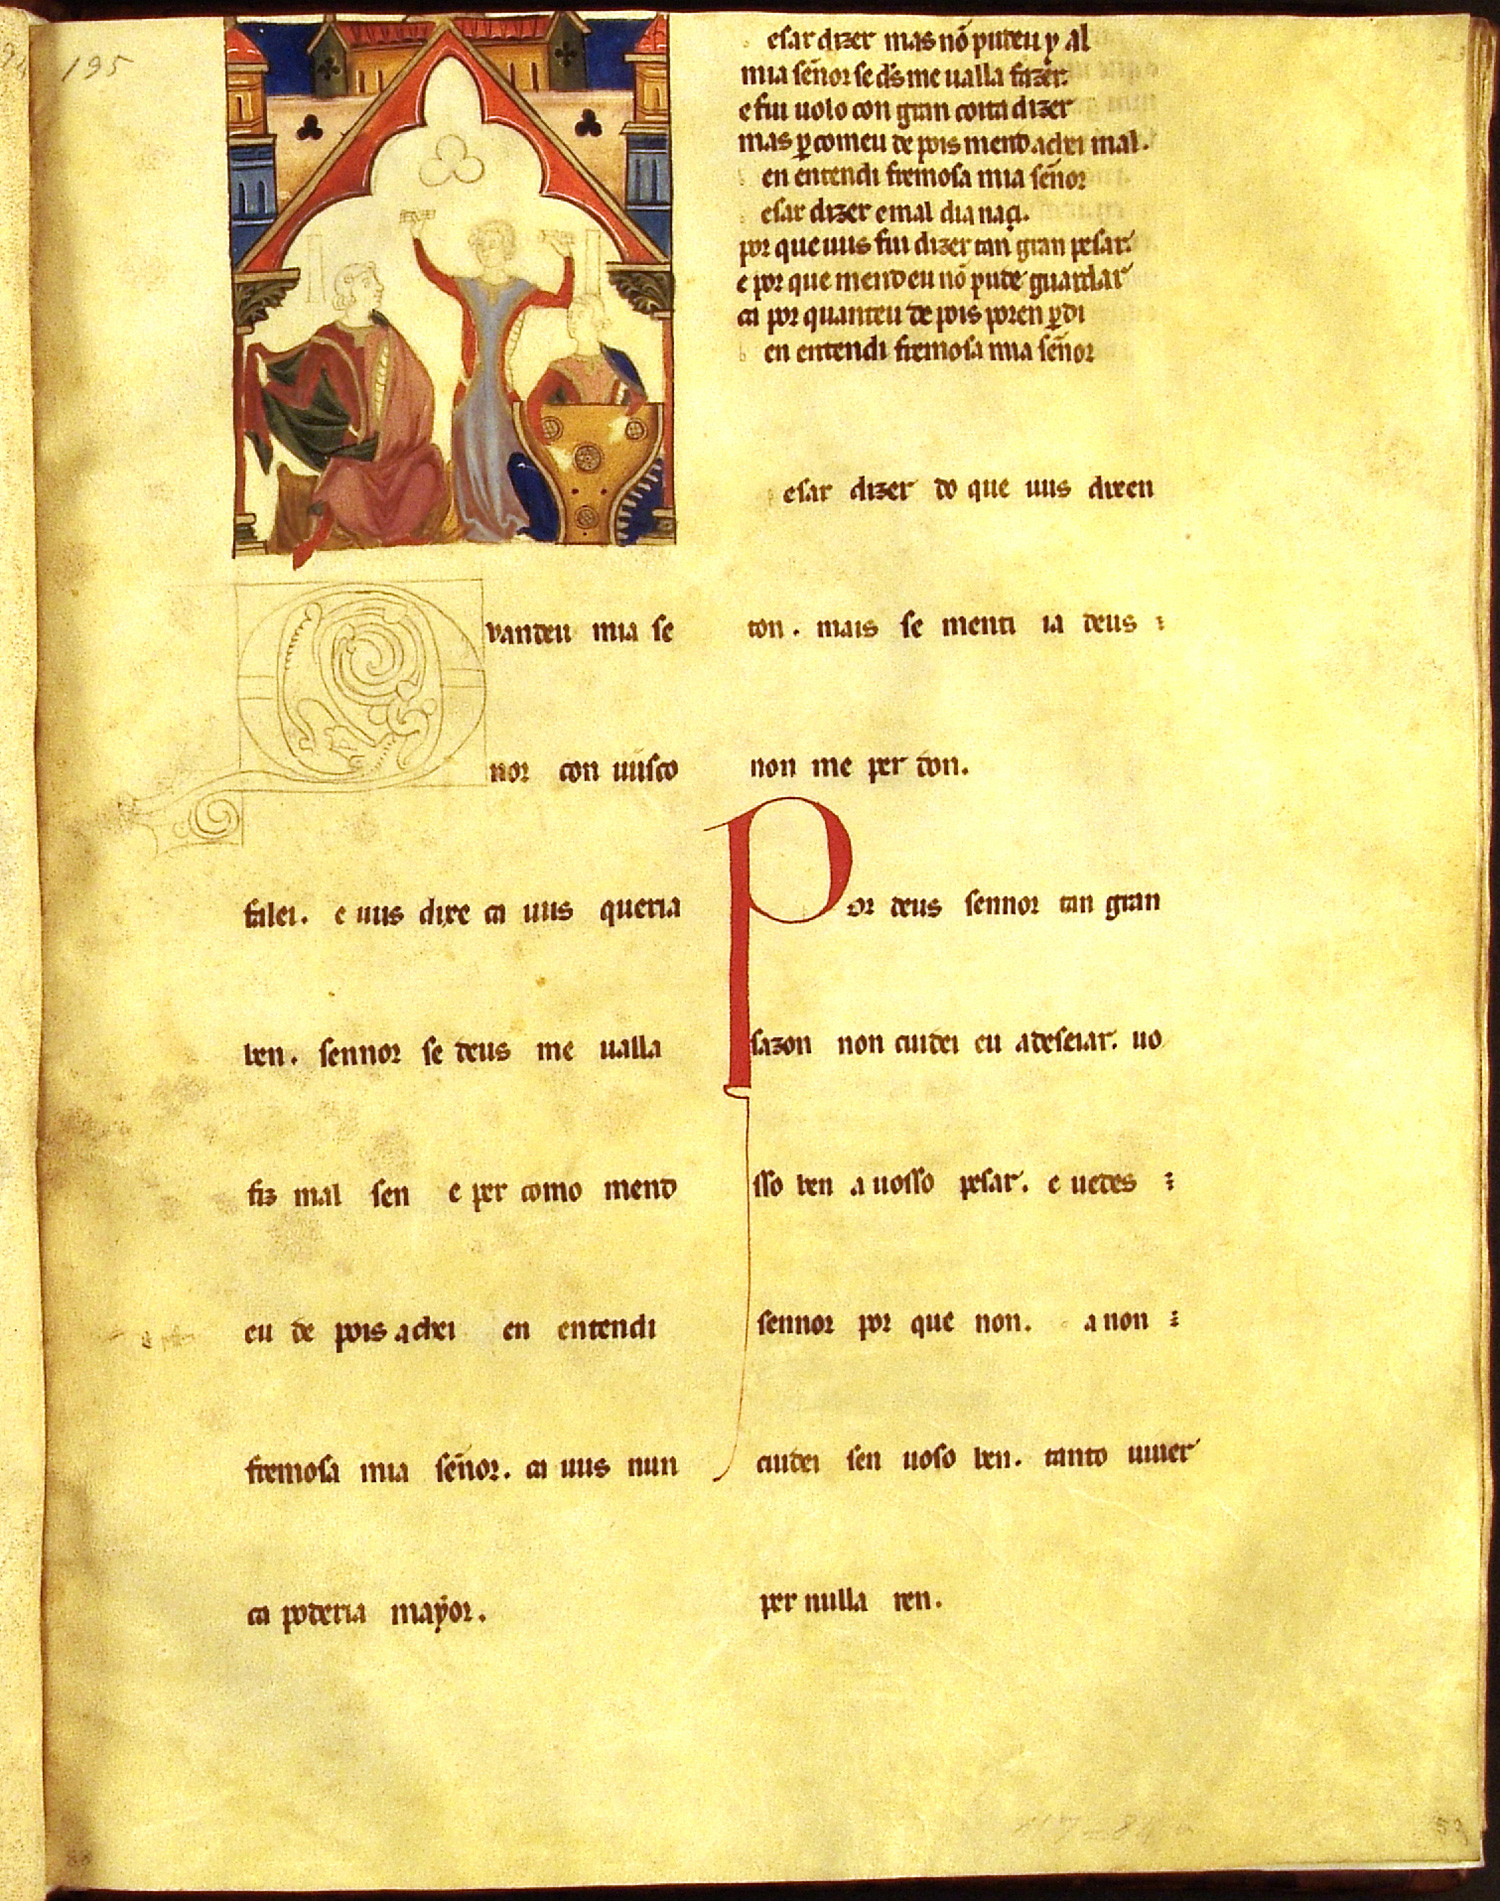 195
vandeu mia se
nor con uusco
falei. e uus dixe ca uus queria
ben. sennor se deus me ualla
fiz mal sen e per como mend
eu de pois achei en entendi
fremosa mia sen̄or. ca uus nun
ca poderia maẏor.
esar dizer mas nō pudeu y al
mia sen̄or se d̄s me ualla fazer.
e fui uolo con gran coita dizer
mas ꝑ comeu de pois mend achei mal.
en entendi fremosa mia sen̄or
esar dizer e mal dia naçi.
por que uus fui dizer tan gran pesar.
e por que mend eu nō pude guardar
ca por quanteu de pois poren ꝑdi
en entendi fremosa mia sen̄or
esar dizer do que uus dixen
ton. mais se menti ia deus :
non me per don.
Por deus sennor tan gran
sazon non cuidei eu a deseiar. uo
sso ben a uosso pesar. e uedes :
sennor por que non. a non :
cuidei sen uoso ben. tanto uiuer
per nulla ren.